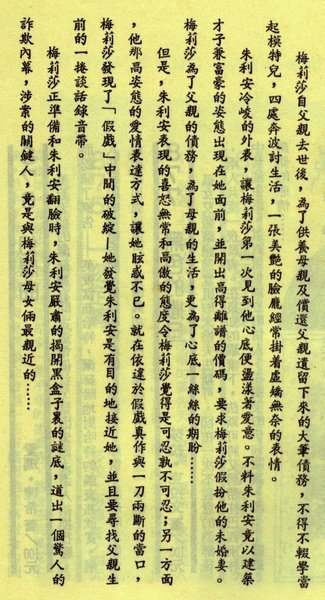 梅莉莎自父親去世後,為了供養母親及償還父親遺留下來的大筆債務,不得不輟學當
起模特兒,四處奔波討生活,一張美艷的臉龐經常掛着虛矯無奈的表情。
朱利安冷峻的外表,讓梅莉莎第一次見到他心底便盪漾著愛意。不料朱利安竟以建築
才子兼富豪的姿態出現在她面前,並開出高得離譜的價碼,要求梅莉莎假扮他的未婚妻。
梅莉莎為了父親的債務,為了母親的生活,更為了心底一絲絲的期盼……
但是,朱利安表現的喜怒無常和高傲的態度令梅莉莎覺得是可忍孰不可忍;另一方面
,他那高姿態的愛情表達方式,讓她眩惑不已。就在依違於假戲真作與一刀兩斷的當口,
梅莉莎發現了「假戲」中間的破綻—她發覺朱利安是有目的地接近她,並且要尋找父親生
前的一捲談話錄音帶。
梅莉莎正準備和朱利安翻臉時,朱利安嚴肅的揭開黑盒子裏的謎底,道出一個驚人的
詐欺內幕,涉案的關鍵人,竟是與梅莉莎母女倆最親近的……